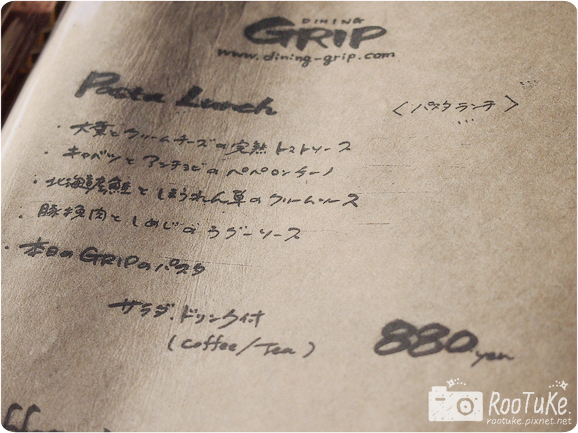 DINING
GRIP
www.dining-grip.com
Pasta Lunch 〈パスタランチ〉
・大葉とクリームチーズの完熟トマトソース
・キャベツとアンチョビのペペロンチーノ
・北海道産鮭とほうれん草のクリームソース
・豚挽肉としめじのラグーソース
・本日のGRIPのパスタ
サラダ・ドリンク付
(Coffee/Tea) 880 yen
RooTuKe.
rootuke.pixnet.net